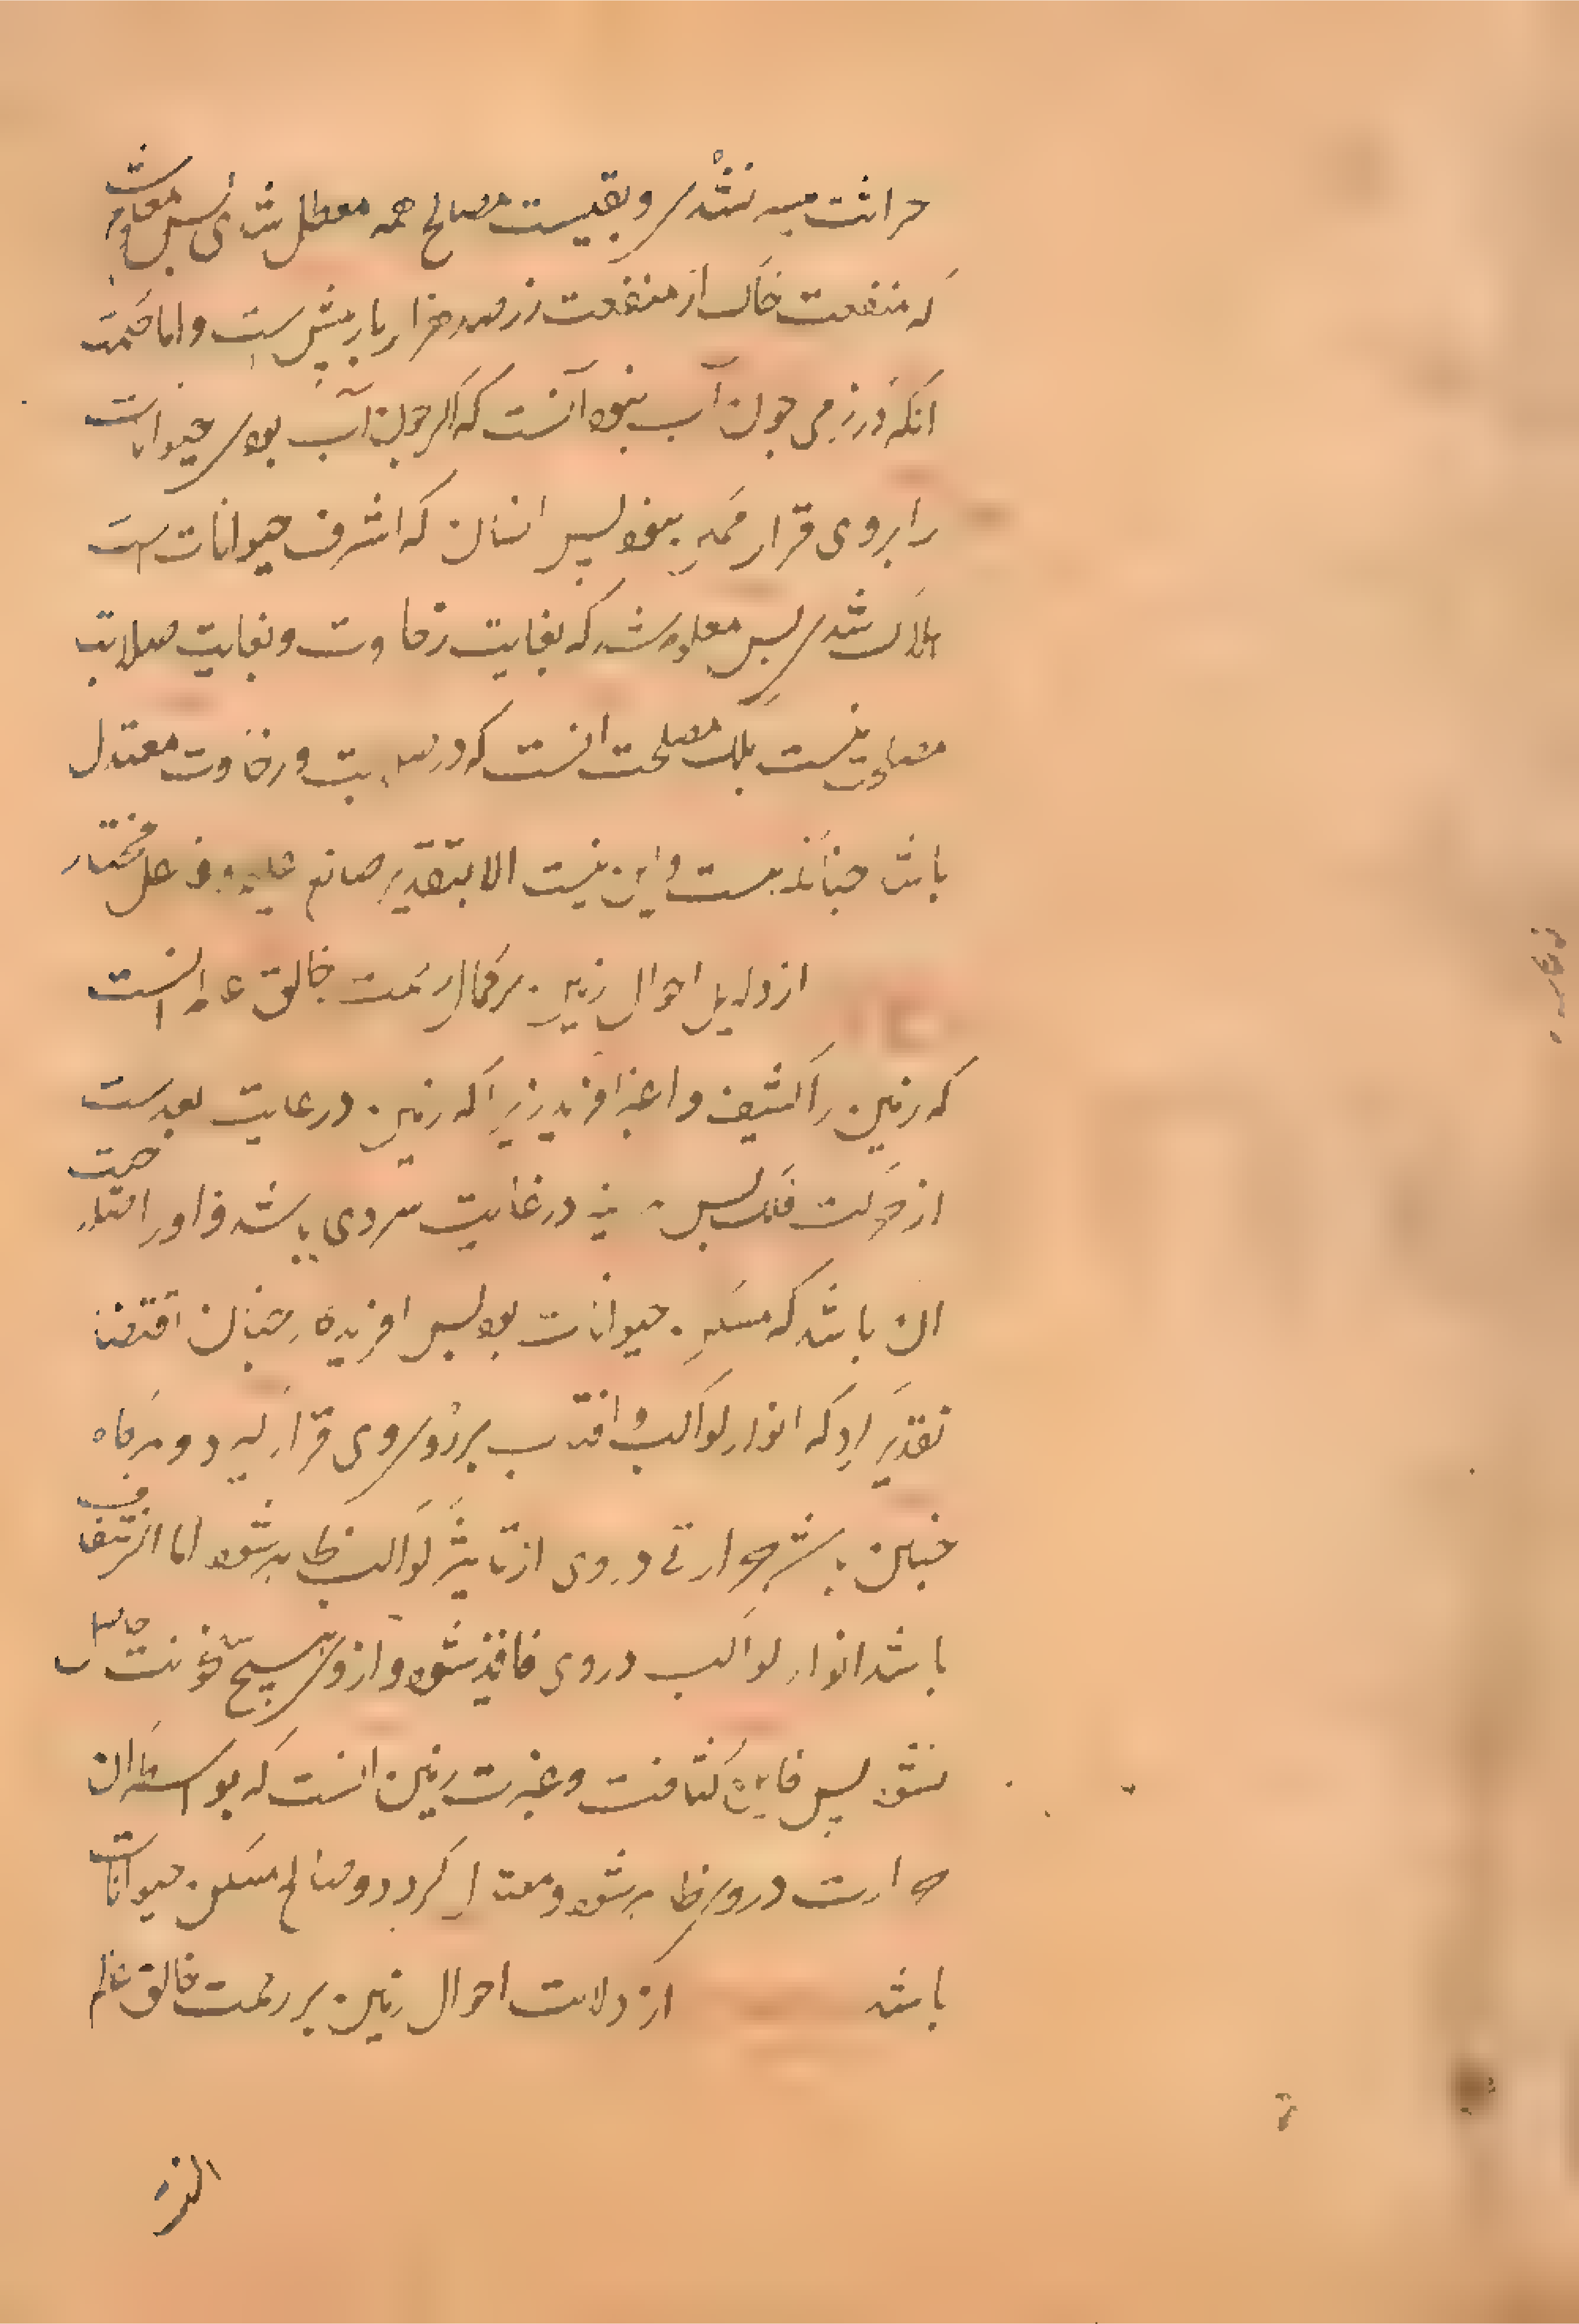 حراثت میسر نشدی و بقیت مصالح همه معطل شدی پس معلوم شد
که منفعت خاک از منفعت زر صد هزار بار بیش است و اما حکمت
آنکه در زمی چون آب نبود آنست که اگر چون آب بودی حیوانات
را بر وی قرار ممکن نبود پس انسان که اشرف حیوانات است
هلاک شدی پس معلوم شد که بغایت رخاوت و بغایت صلابت
مصلحت نیست بلک مصلحت انست که در صلابت و رخاوت معتدل
باشد چنانک هست و این نیست الا بتقدیر صانع علیم و فاعل مختار
از دلایل احوال زمین بر کمال رحمت خالق عالم انست
که زمین را کثیف و اغبر افرید زیرا که زمین در غایت بعدست
از حرکت فلک پس زمین در غایت سردی باشد و او را صلاحیت
ان باشد که مسکن حیوانات بود پس افریدگار چنان اقتضا
تقدیر کرد که انوار کواکب و افتاب بر روی وی قرار گیرد و هرگاه
چنین باشد حرارتی در وی از تاثیر کواکب ظاهر شود اما اگر شفاف
باشد انوار کواکب در وی نافذ شود و از وی هیچ سخونت حاصل
نشود پس فایده کثافت و غبرت زمین انست که بواسطه ان
حرارت در وی ظاهر شود و معتدل گردد و صالح مسکن حیوانات
باشد از دلالت احوال زمین بر رحمت خالق عالم